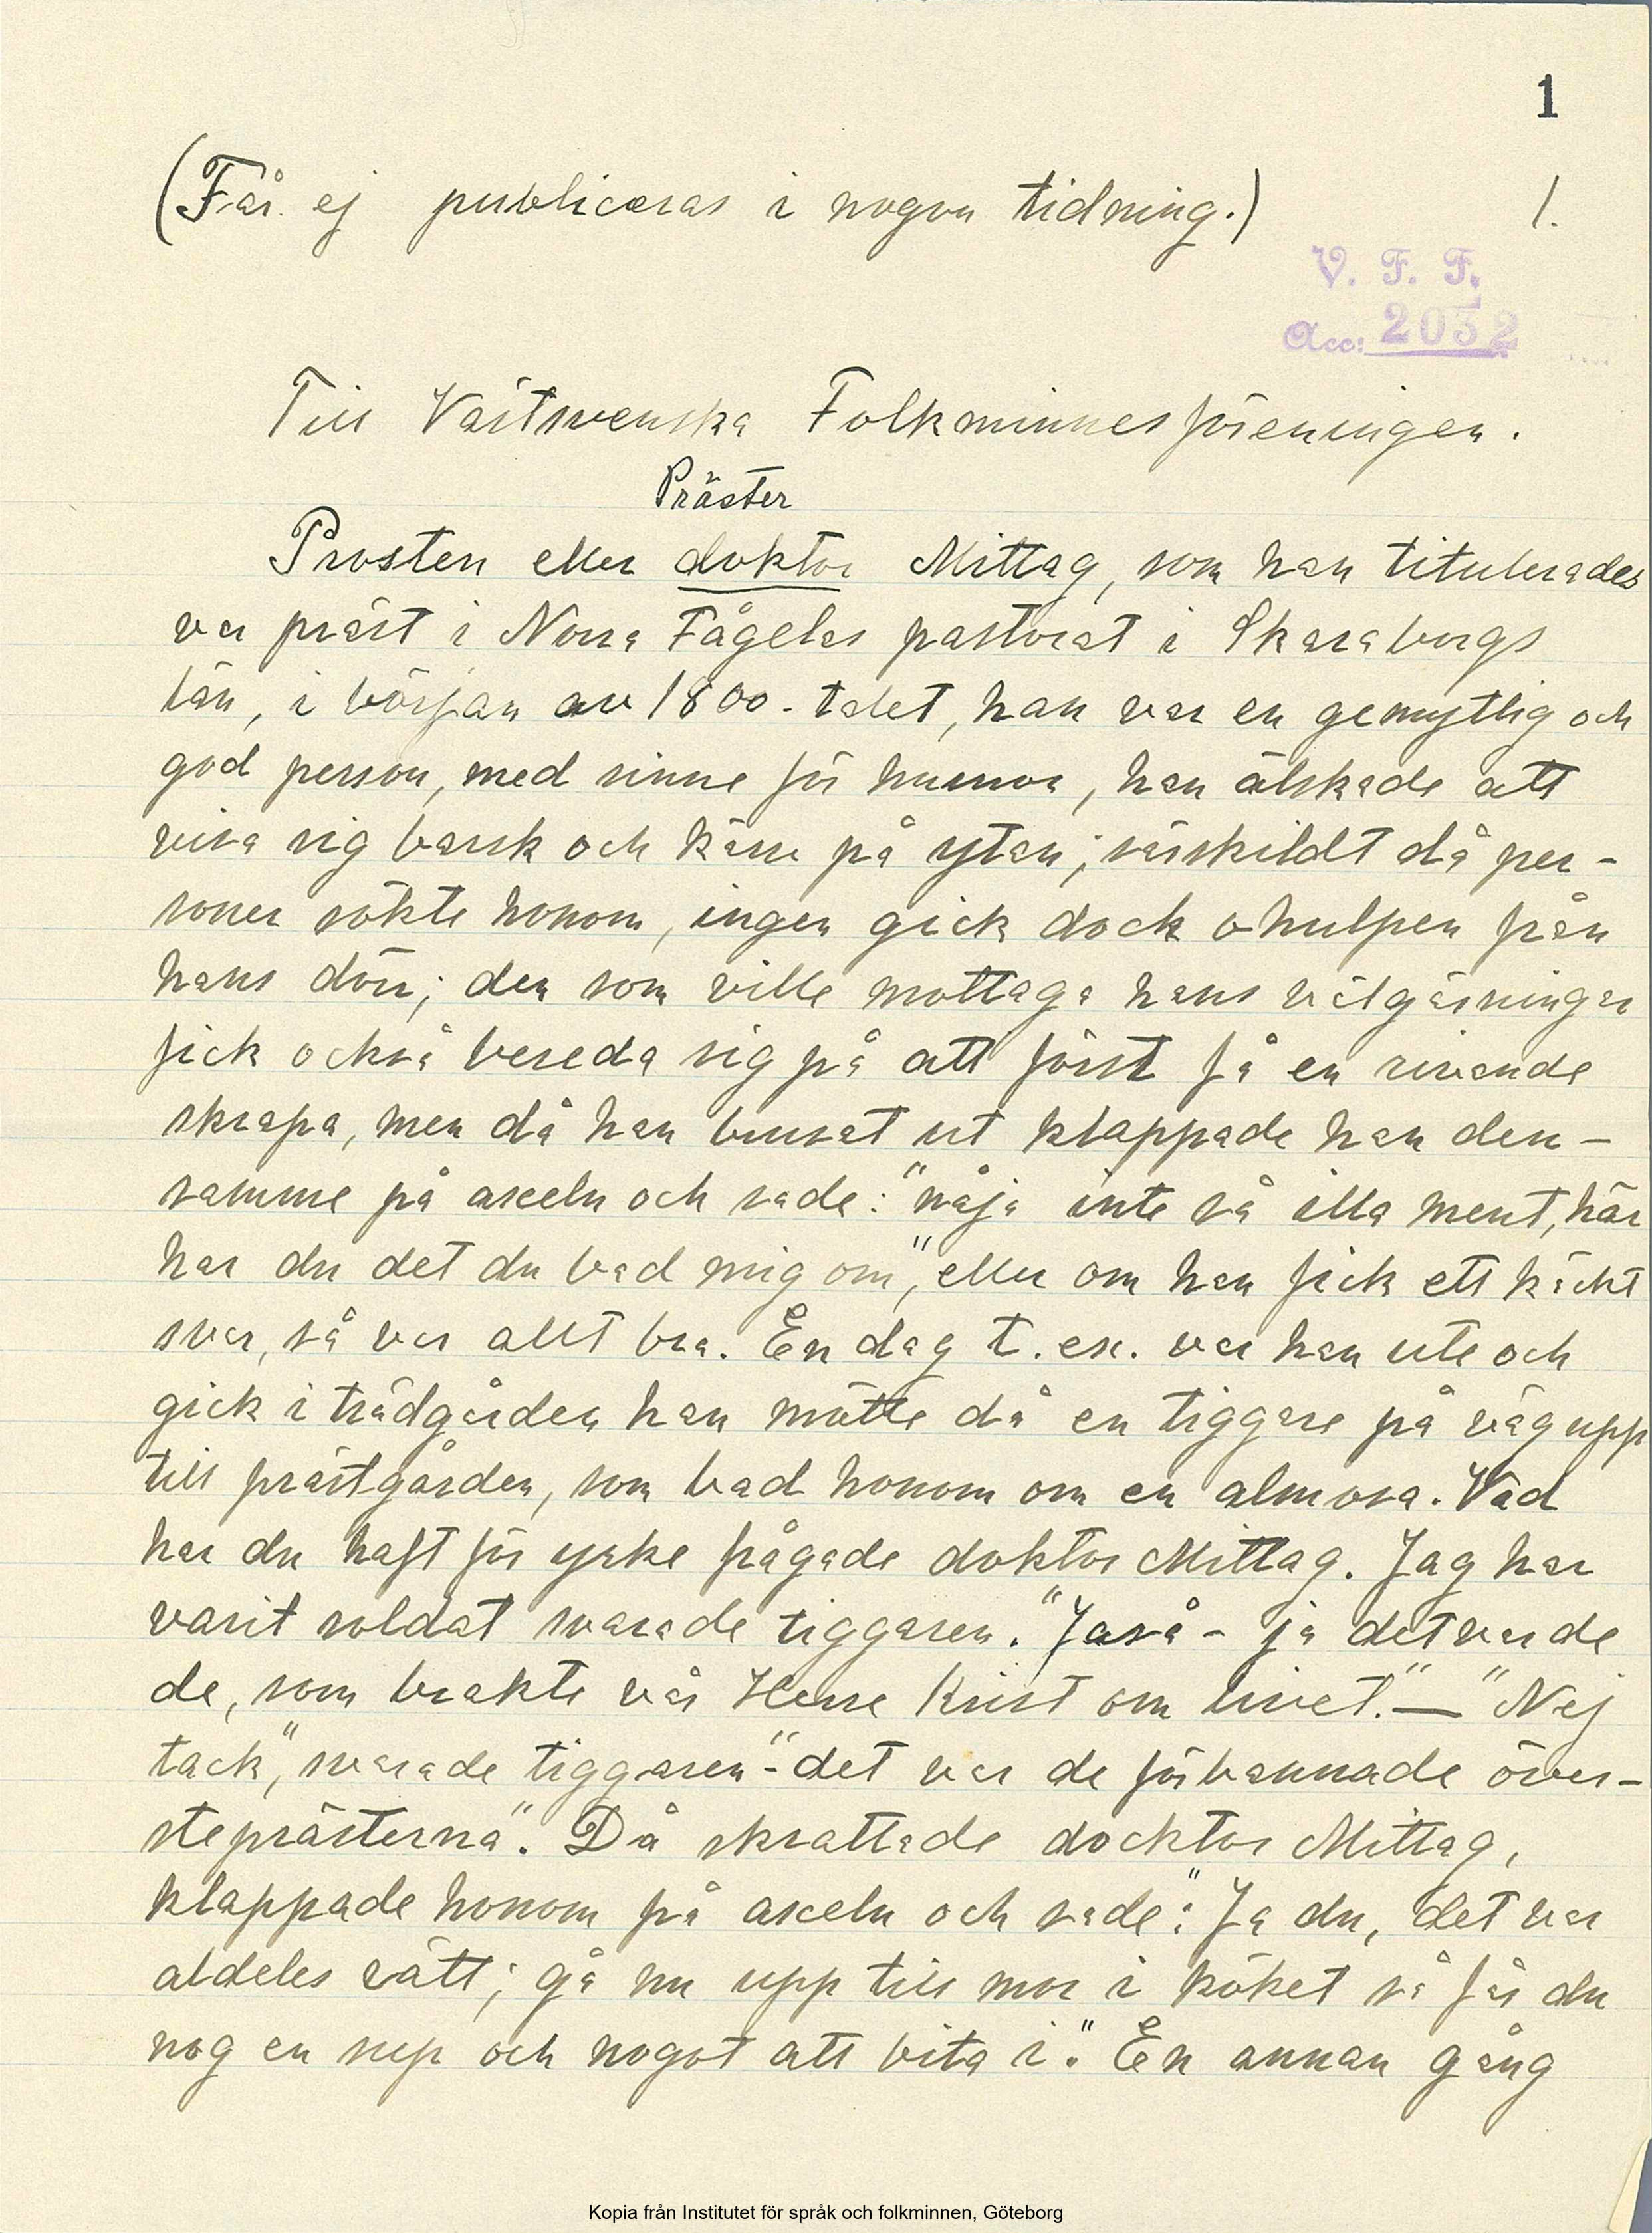 1
(Får ej publiceras i nogon tidning.) 1.
V. F. F.
Acc: 2032
Till Västsvenska Folkminnesföreningen.
Präster
Prosten eller doktor Mittag, som han titulerades
var präst i Norra Fågelas pastorat i Skaraborgs
län, i början av 1800-talet, han var en gemytlig och
god person, med sinne för humor, han älskade att
visa sig barsk och kärv på ytan; särskildt då per-
soner sökte honom, ingen gick dock ohulpen från
hans dörr; den som ville mottaga hans välgärningar
fick också bereda sig på att först få en rivande
skrapa, men då han brusat ut klappade han den-
samme på axeln och sade: "nåja inte så illa ment, här
har du det du bad mig om", eller om han fick ett käckt
svar, så var allt bra. En dag t. ex. var han ute och
gick i trädgården han mötte då en tiggare på väg upp
till prästgården, som bad honom om en almosa. Vad
har du haft för yrke frågade doktor Mittag. Jag har
varit soldat svarade tiggaren. "Jaså - ja det var de
de, som brakte vår Herre Krist om livet." — "Nej
tack", svarade tiggaren - "det var de förbannade över-
steprästerna". Då skrattade docktor Mittag,
klappade honom på axeln och sade: "Ja du, det var
aldeles rätt; gå nu upp till mor i köket så får du
nog en sup och nogot att bita i." En annan gång
Kopia från Institutet för språk och folkminnen, Göteborg